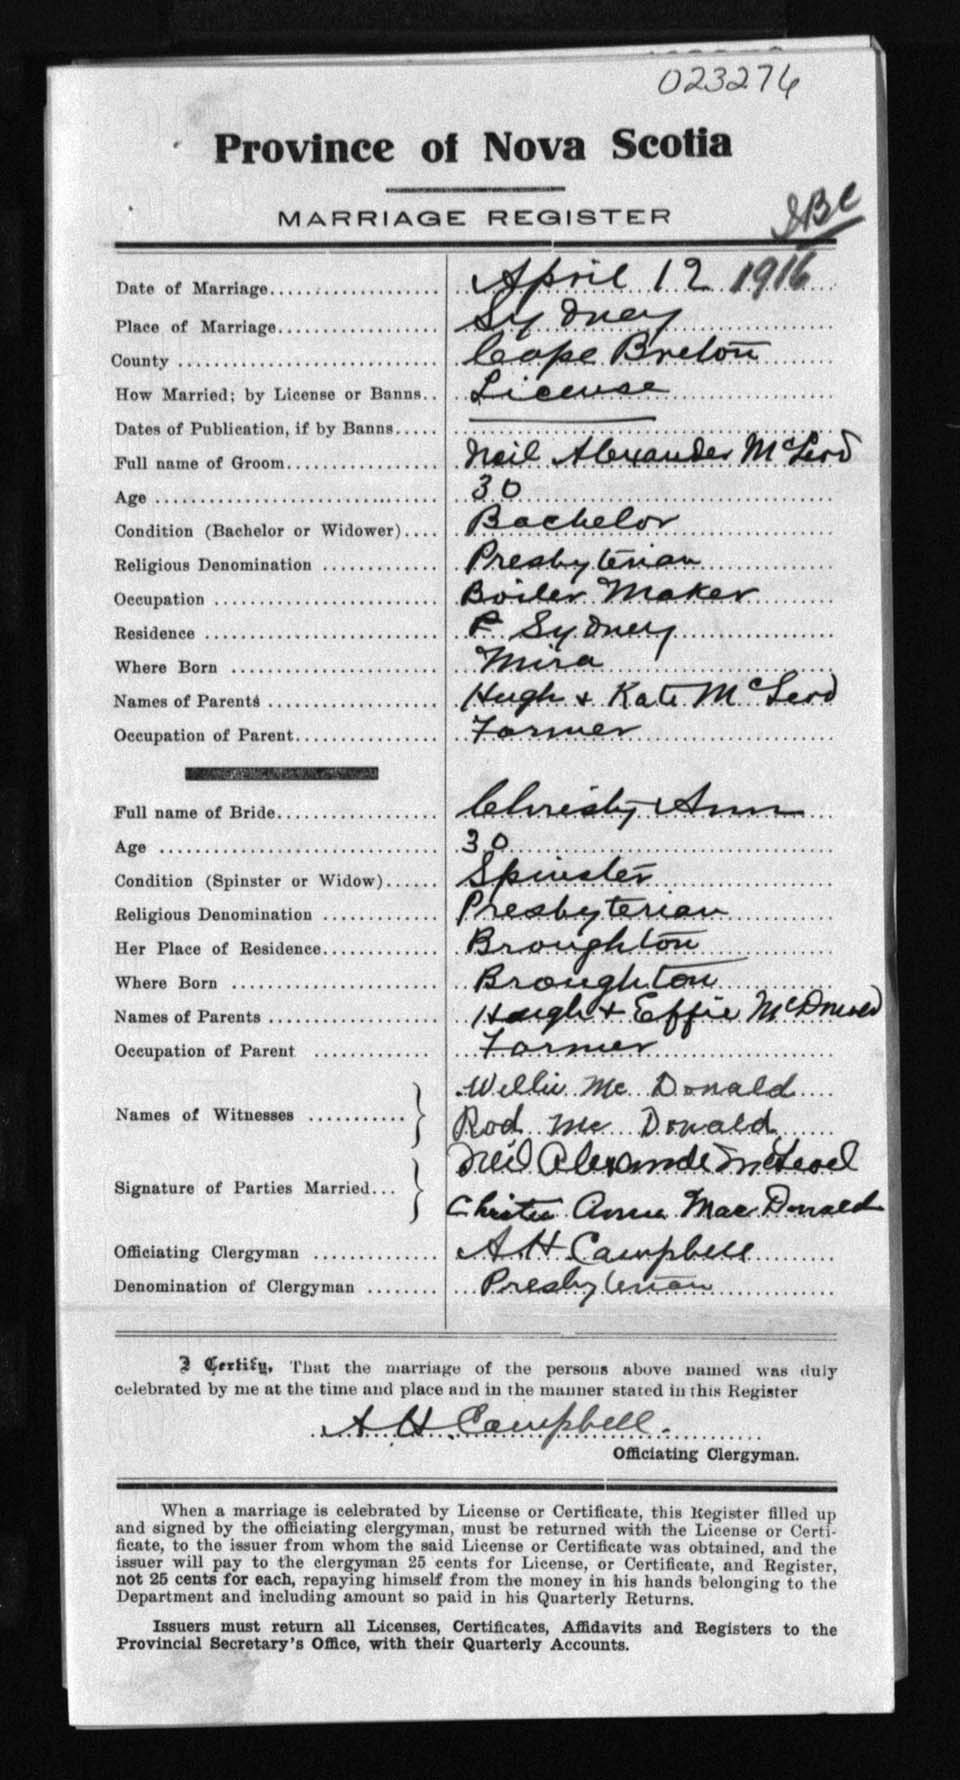 023276
Province of Nova Scotia
MARRIAGE REGISTER
Date of Marriage.................... April 12 1916
Place of Marriage................... Sydney
County ............................. Cape Breton
How Married; by License or Banns.. License
Dates of Publication, if by Banns.....
Full name of Groom.................. Neil Alexander McLeod
Age ................................ 30
Condition (Bachelor or Widower).... Bachelor
Religious Denomination ............. Presbyterian
Occupation ......................... Boiler Maker
Residence .......................... Sydney
Where Born ......................... Mira
Names of Parents ................... Hugh + Kate McLeod
Occupation of Parent................ Farmer
Full name of Bride.................. Christy Ann
Age ................................ 30
Condition (Spinster or Widow)...... Spinster
Religious Denomination ............. Presbyterian
Her Place of Residence............. Broughton
Where Born ......................... Broughton
Names of Parents ................... Hugh + Effie McDonald
Occupation of Parent ............... Farmer
Willie Mc Donald
Names of Witnesses ...........
Rod Mc Donald
Neil Alexander McLeod
Signature of Parties Married...
Christie Annie MacDonald
Officiating Clergyman .............. A H Campbell
Denomination of Clergyman ........ Presbyterian
I Certify, That the marriage of the persons above named was duly
celebrated by me at the time and place and in the manner stated in this Register
A H Campbell.
Officiating Clergyman.
When a marriage is celebrated by License or Certificate, this Register filled up
and signed by the officiating clergyman, must be returned with the License or Certi-
ficate, to the issuer from whom the said License or Certificate was obtained, and the
issuer will pay to the clergyman 25 cents for License, or Certificate, and Register,
not 25 cents for each, repaying himself from the money in his hands belonging to the
Department and including amount so paid in his Quarterly Returns.
Issuers must return all Licenses, Certificates, Affidavits and Registers to the
Provincial Secretary's Office, with their Quarterly Accounts.